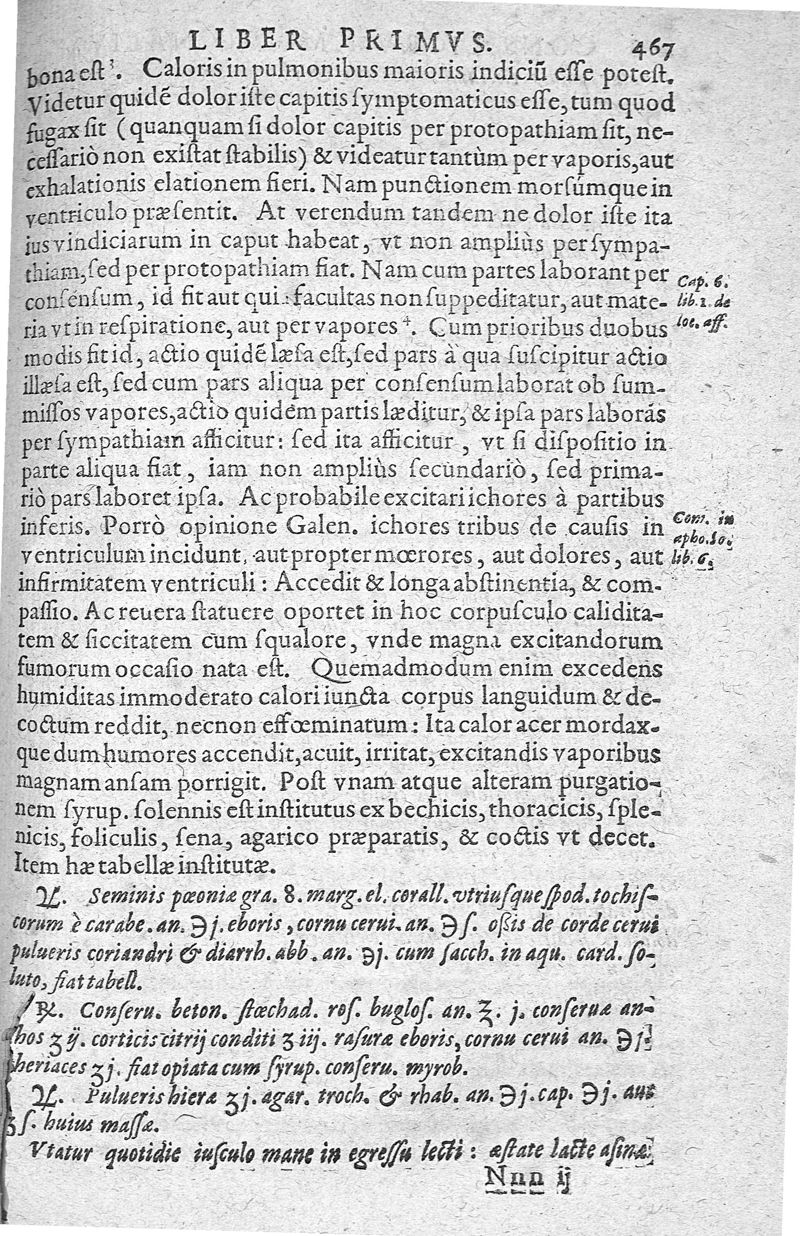 LIBER PRIMVS. 467
bona eſt ³. Caloris in pulmonibus maioris indiciũ eſſe poteſt.
Videtur quidẽ dolor iſte capitis ſymptomaticus eſſe, tum quod
fugax ſit (quanquam ſi dolor capitis per protopathiam ſit, ne-
ceſſariò non exiſtat ſtabilis) & videatur tantùm per vaporis, aut
exhalationis elationem fieri. Nam punctionem morſúmque in
ventriculo præſentit. At verendum tandem ne dolor iſte ita
ius vindiciarum in caput habeat, vt non ampliùs per ſympa-
thiam, ſed per protopathiam fiat. Nam cum partes laborant per
Cap. 6.
conſenſum, id fit aut quia facultas non ſuppeditatur, aut mate-
lib. 1. de
ria vt in reſpiratione, aut per vapores ⁴. Cum prioribus duobus
loc. aff.
modis fit id, actio quidẽ læſa eſt, ſed pars à qua ſuſcipitur actio
illæſa eſt, ſed cum pars aliqua per conſenſum laborat ob ſum-
miſſos vapores, actio quidem partis læditur, & ipſa pars laborãs
per ſympathiam afficitur: ſed ita afficitur, vt ſi diſpoſitio in
parte aliqua fiat, iam non ampliùs ſecundariò, ſed prima-
riò pars laboret ipſa. Ac probabile excitari ichores à partibus
inferis. Porrò opinione Galen. ichores tribus de cauſis in
Com. in
apho. 50.
ventriculum incidunt, aut propter mœrores, aut dolores, aut
lib. 6.
infirmitatem ventriculi: Accedit & longa abſtinentia, & com-
paſſio. Ac reuera ſtatuere oportet in hoc corpuſculo calidita-
tem & ſiccitatem cum ſqualore, vnde magna excitandorum
fumorum occaſio nata eſt. Quemadmodum enim excedens
humiditas immoderato calori iuncta corpus languidum & de-
coctum reddit, necnon effœminatum: Ita calor acer mordax-
que dum humores accendit, acuit, irritat, excitandis vaporibus
magnam anſam porrigit. Poſt vnam atque alteram purgatio-
nem ſyrup. ſolennis eſt inſtitutus ex bechicis, thoracicis, ſple-
nicis, foliculis, ſena, agarico præparatis, & coctis vt decet.
Item hæ tabellæ inſtitutæ.
♃. Seminis pœoniæ gra. 8. marg. el. corall. vtriuſque ſpod. tochiſ-
corum è carabe. an. ℈ j. eboris, cornu cerui. an. ℈ ſ. oßis de corde cerui
pulueris coriandri & diarrh. abb. an. ℈j. cum ſacch. in aqu. card. ſo-
luto, fiat tabell.
℞. Conſeru. beton. ſtœchad. roſ. bugloſ. an. ℥. j. conſeruæ an-
thos ʒ ij. corticis citrij conditi ʒ iij. raſuræ eboris, cornu cerui an. ℈ j.
theriaces ʒ j. fiat opiata cum ſyrup. conſeru. myrob.
♃. Pulueris hieræ ʒ j. agar. troch. & rhab. an. ℈ j. cap. ℈ j. aut
ʒ ſ. huius maſſæ.
Vtatur quotidie iuſculo mane in egreſſu lecti: æſtate lacte aſinæ
Nnn ij